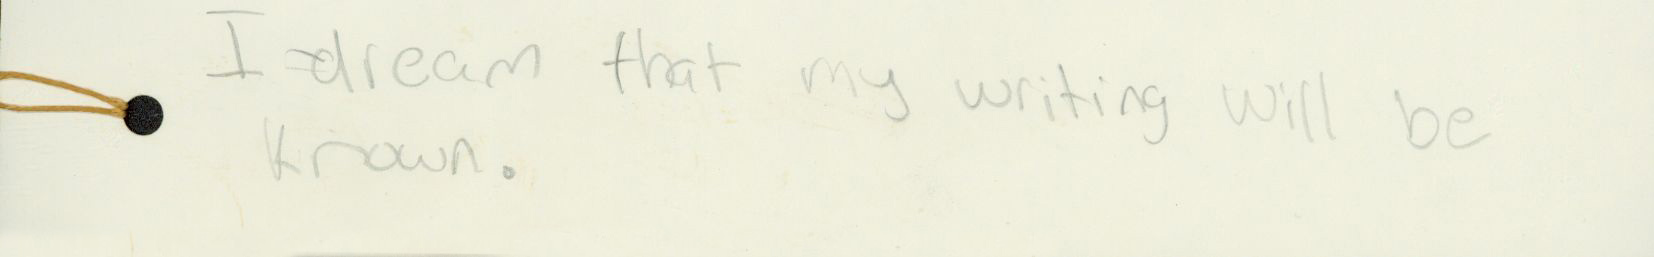 I dream that my writing will be
known.